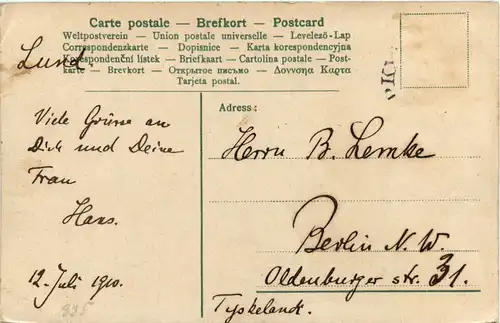 Carte postale — Brefkort — Postcard
Weltpostverein — Union postale universelle — Levelezö-Lap
Correspondenzkarte — Dopisnice — Karta korespondencyjna
Korespondenční lístek — Briefkaart — Cartolina postale — Post-
karte — Brevkort — Открытое письмо — Дописна Карта
Tarjeta postal.
Lund.
Viele Grüsse an
Dich und Deine
Frau
Hans.
12. Juli 1910.
Adress:
Herrn B. Lemke
Berlin N. W.
Oldenburger str. 31.
Tyskeland.